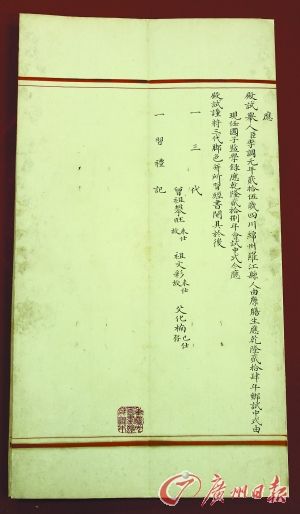 應
殿試舉人臣李調元年貳拾伍歲四川綿州羅江縣人由廩膳生應乾隆貳拾肆年鄉試中式由
現任國子監學錄應乾隆貳拾捌年會試中式今應
殿試謹將三代脚色并所習經書開具於後
一三代
曾祖攀旺未仕故 祖文彩未仕故 父化楠已仕存
一習禮記
廣州日報